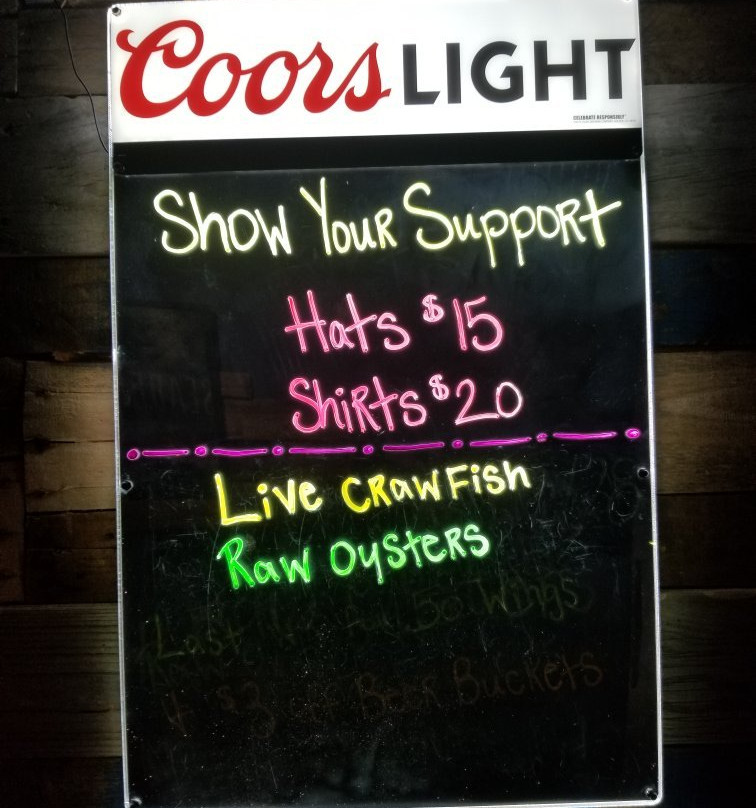 Coors LIGHT
CELEBRATE RESPONSIBLY
Show Your Support
Hats $15
Shirts $20
Live Crawfish
Raw Oysters
Last 50 Wings
$3 off Beer Buckets